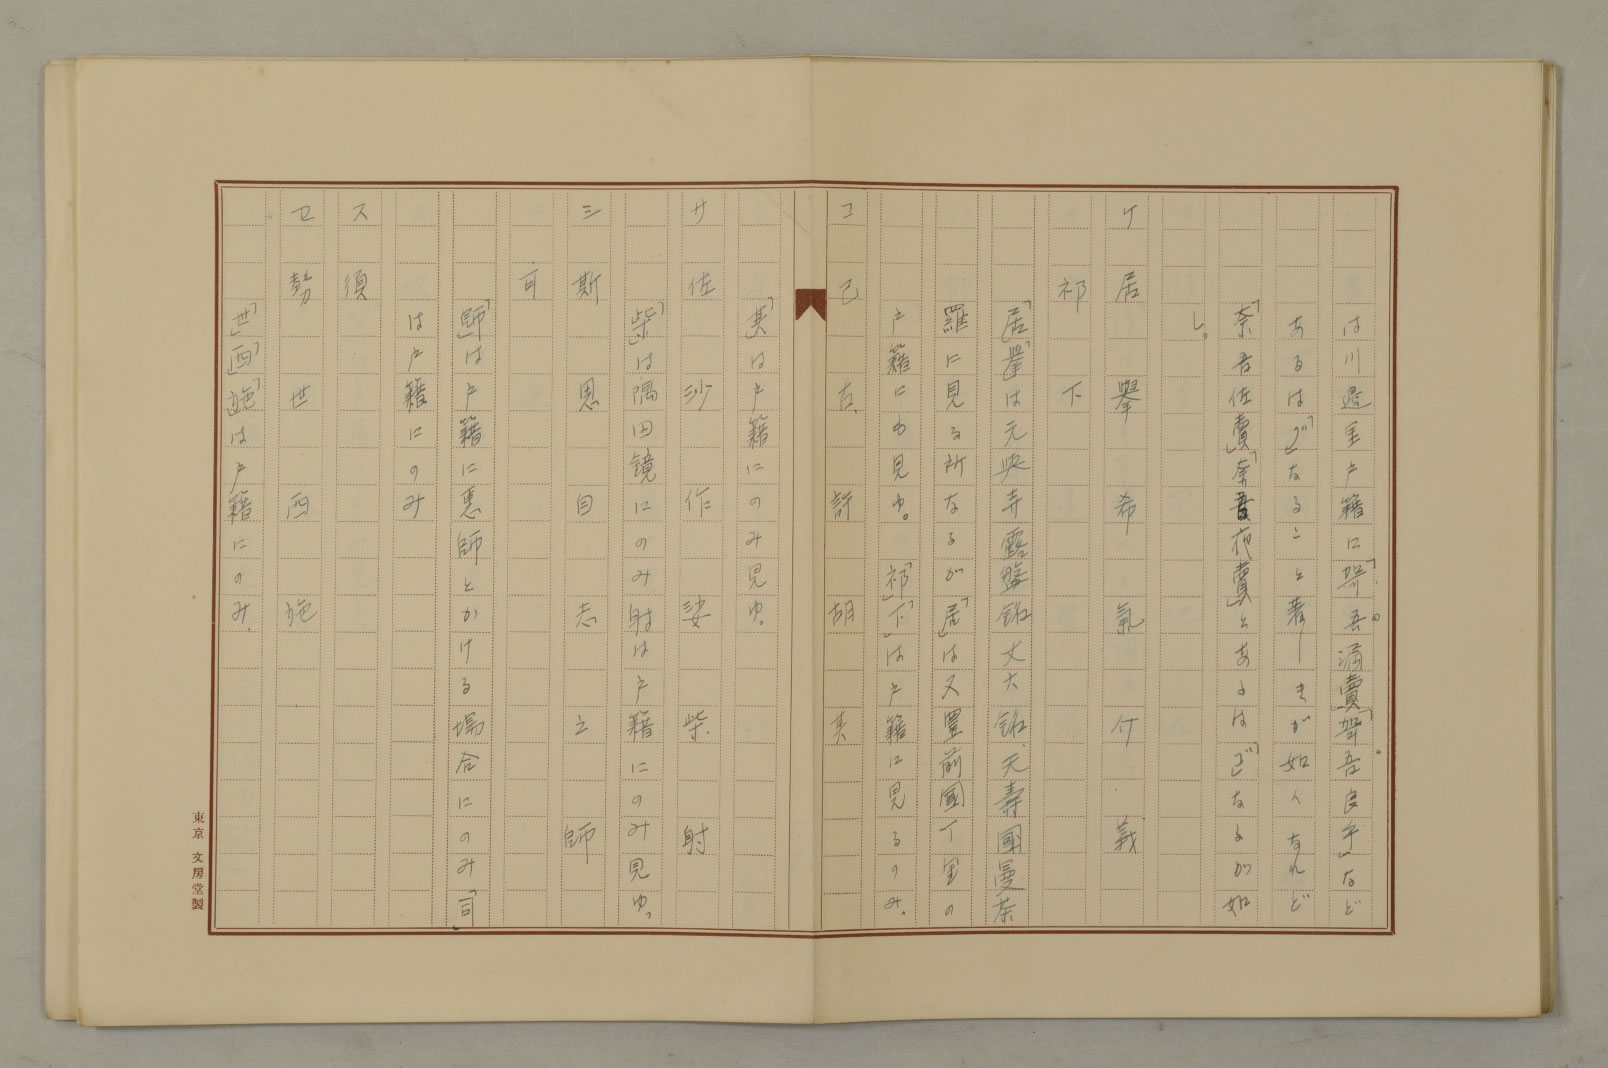 は川邊里戸籍に「哿吾漏賣」「哿吾良乎」など
あるは「グ」なること著しきが如くなれど
「奈吾佐賣」「奈吾夜賣」とあるは「ゴ」なるが如
し。
ケ 居 擧 希 氣 仟 義
祁 下
「居」「擧」は元興寺露盤銘丈六銘、天壽國曼荼
羅に見る所なるが「居」は又豐前國丁里の
戸籍にも見ゆ。「祁」「下」は戸籍に見るのみ。
コ 己 古 許 胡 其
「其」は戸籍にのみ見ゆ。
サ 佐 沙 作 娑 柴 射
「柴」は隅田鏡にのみ射は戸籍にのみ見ゆ。
シ 斯 思 自 志 之 師
司
「師」は戸籍に惠師とかける場合にのみ「司」
は戸籍にのみ
ス 須
セ 勢 世 西 施
「世」「西」「施」は戸籍にのみ.
東京 文房堂製